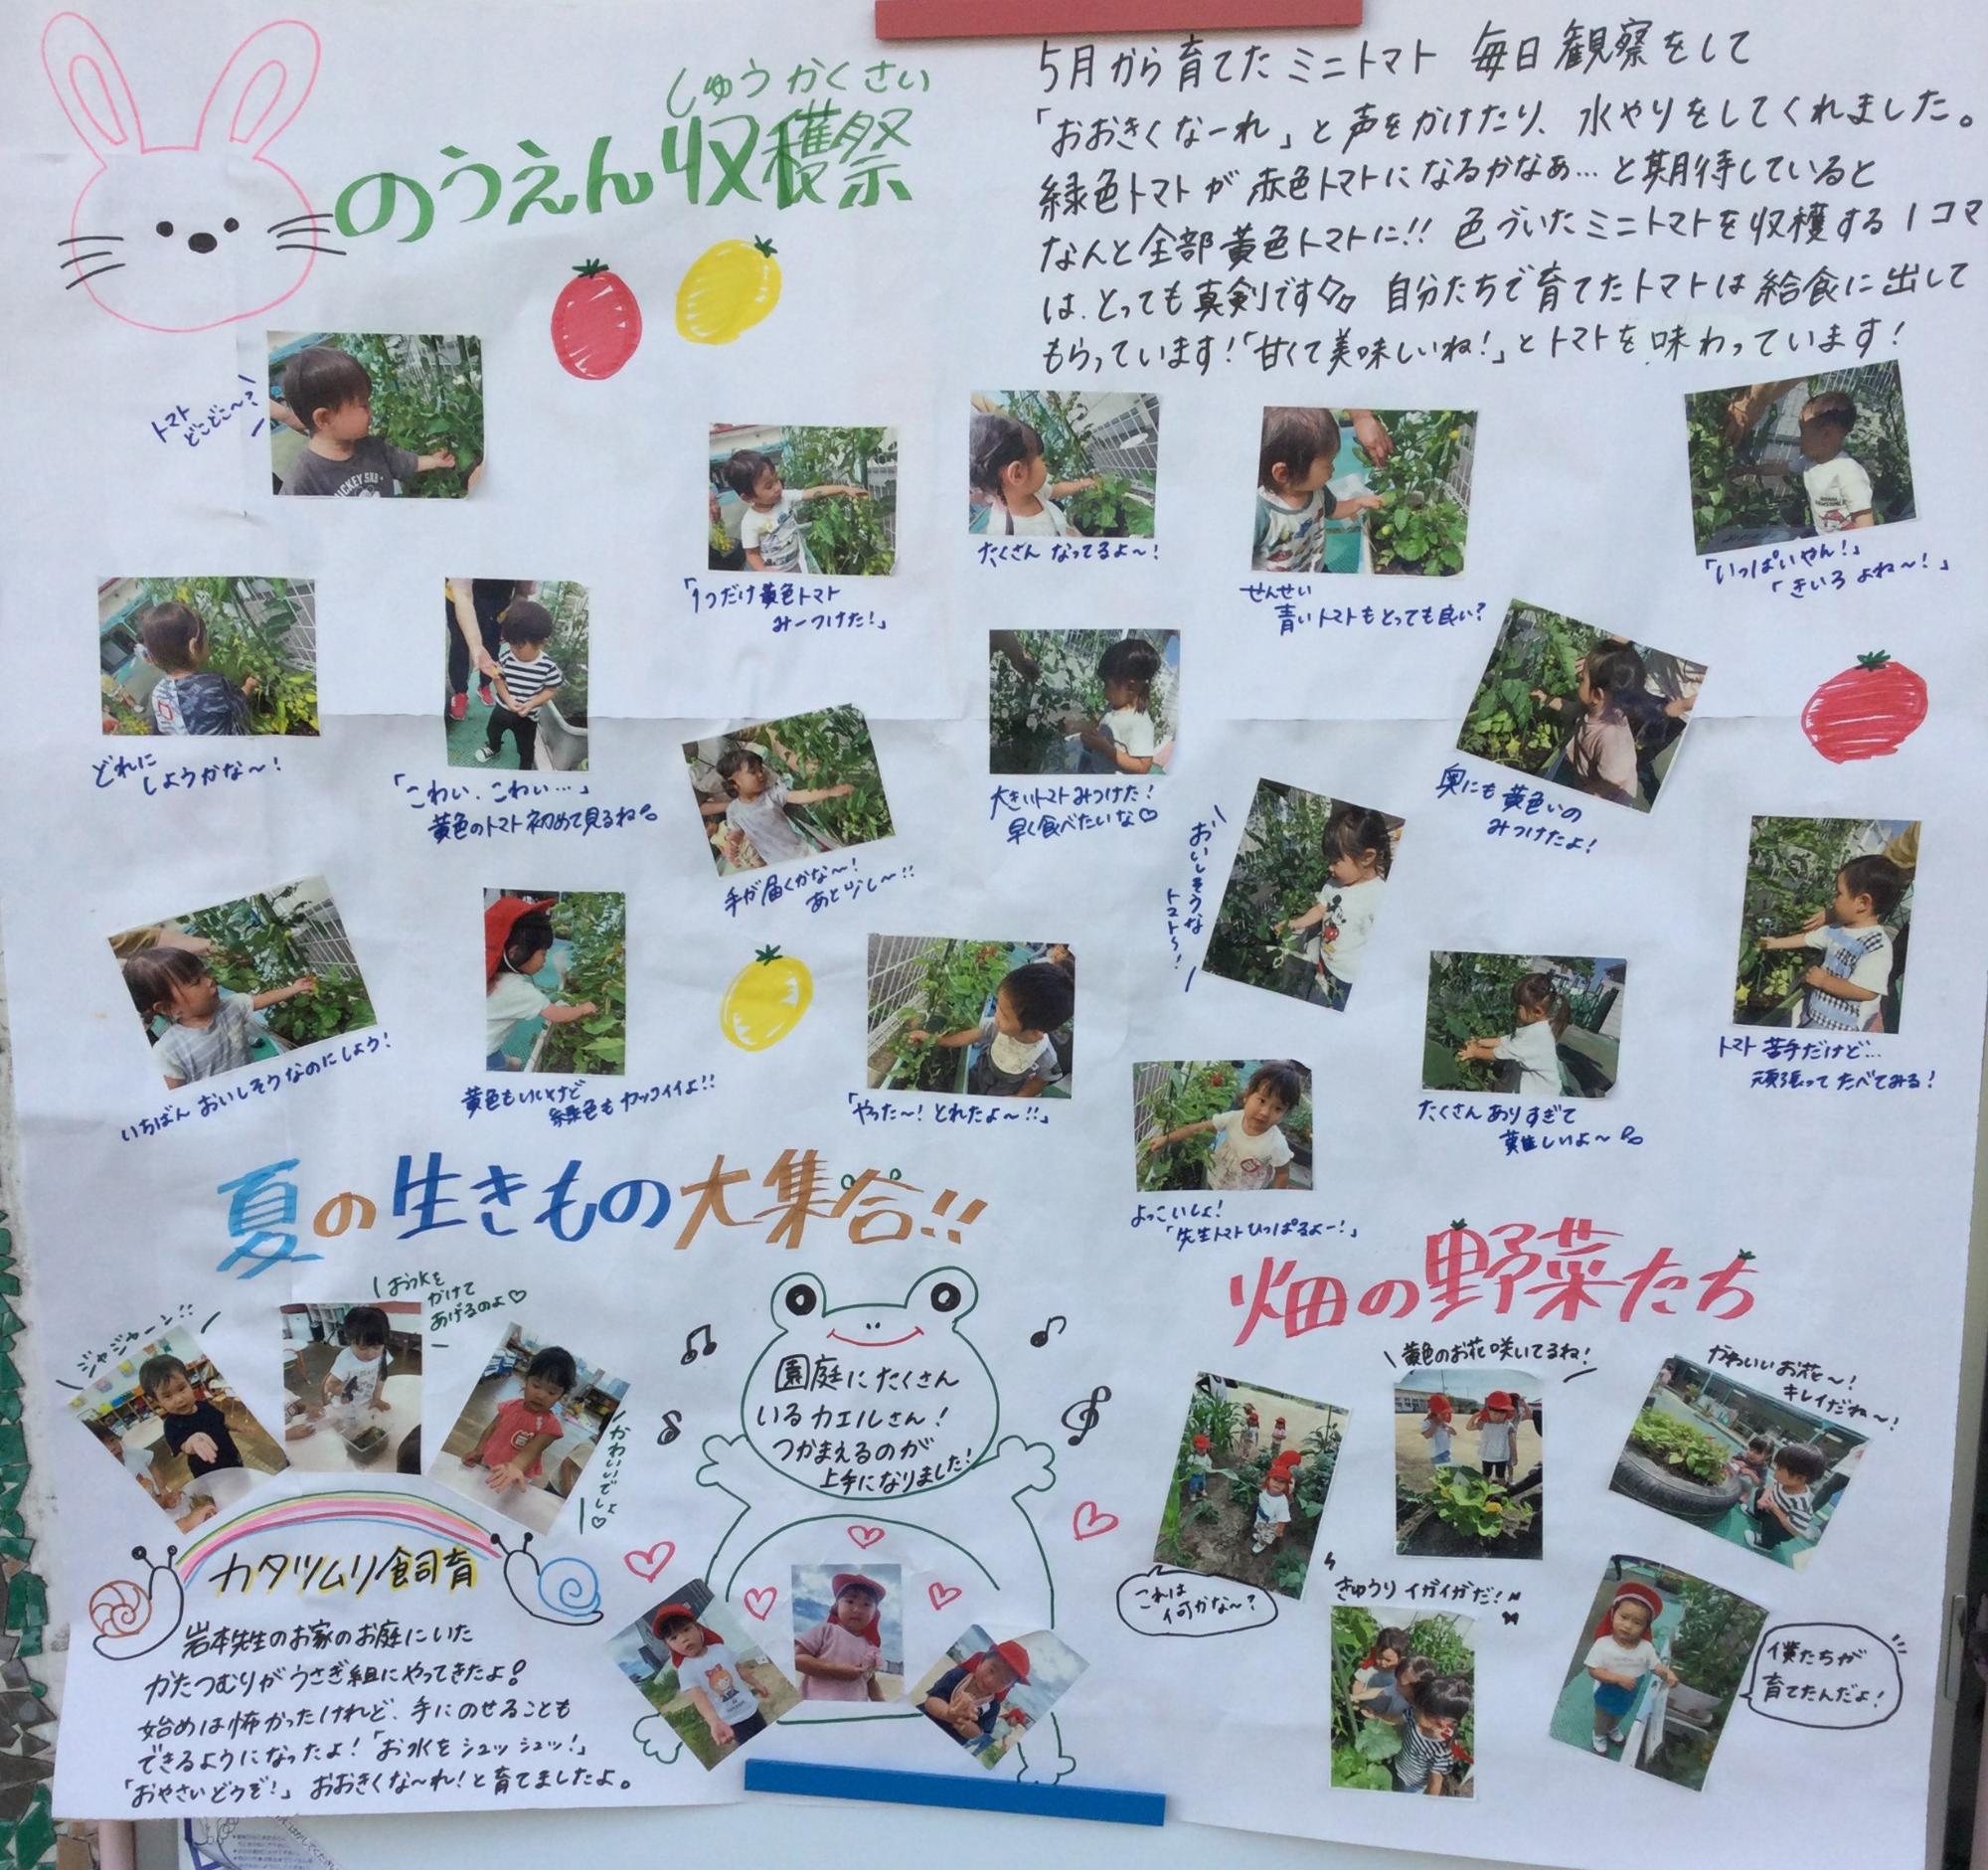 しゅうかくさい
のうえん収穫祭
5月から育てたミニトマト 毎日観察をして
「おおきくなーれ」と声をかけたり、水やりをしてくれました。
緑色トマトが赤色トマトになるかなぁ…と期待していると
なんと全部黄色トマトに!! 色づいたミニトマトを収穫する1コマ
は、とっても真剣です 自分たちで育てたトマトは給食に出して
もらっています!「甘くて美味しいね!」とトマトを味わっています!
トマト
どこどこ〜?
「1つだけ黄色トマト
みーつけた!」
たくさん なってるよ〜!
せんせい
青いトマトもとっても良い?
「いっぱいやん!」
「きいろ よね〜!」
どれに
しようかな〜!
「こわい、こわい…」
黄色のトマト初めて見るね。
手が届くかな〜!
あと少し〜!!
大きいトマトみつけた!
早く食べたいな♡
おいしそうな
トマト〜!
奥にも黄色いの
みつけたよ!
いちばん おいしそうなのにしよう!
黄色もいいけど
緑色もカッコイイよ!!
「やった〜! とれたよ〜!!」
よっこいしょ!
「先生トマトひっぱるよー!」
たくさんありすぎて
難しいよ〜
トマト苦手だけど…
頑張って たべてみる!
夏の生きもの大集合!!
ジャジャーン!!
お水を
かけて
あげるのよ♡
かわいいでしょ♡
カタツムリ飼育
岩本先生のお家のお庭にいた
かたつむりがうさぎ組にやってきたよ!
始めは怖かったけれど、手にのせることも
できるようになったよ!「お水をシュッシュッ!」
「おやさいどうぞ!」おおきくな〜れ!と育てましたよ。
園庭にたくさん
いるカエルさん!
つかまえるのが
上手になりました!
畑の野菜たち
黄色のお花咲いてるね!
かわいいお花〜!
キレイだね〜!
これは
何かな〜?
きゅうり イガイガだ!
僕たちが
育てたんだよ!